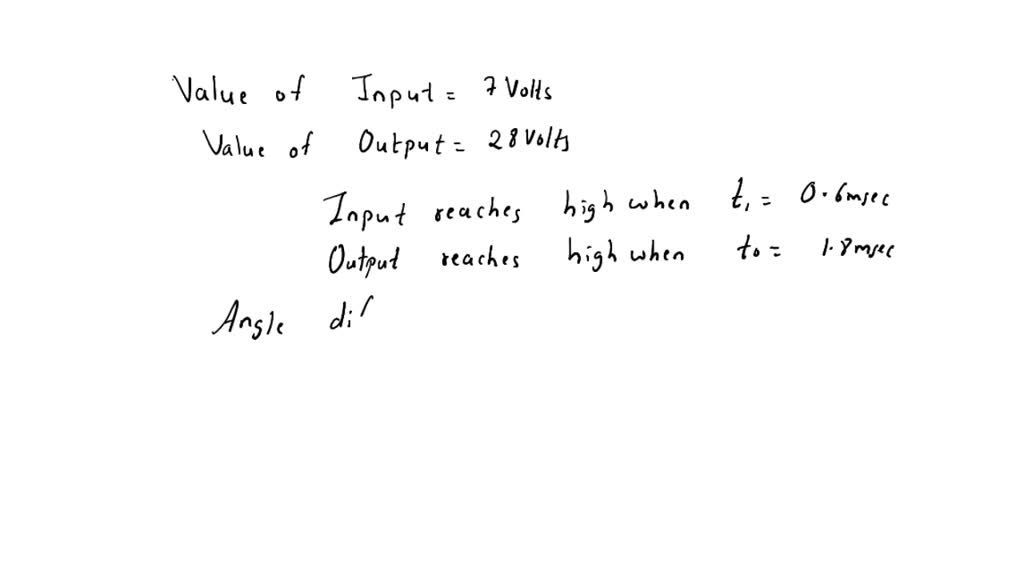 Value of Input = 7 Volts
Value of Output = 28 Volts
Input reaches high when t, = 0.6msec
Output reaches high when to = 1.8msec
Angle di